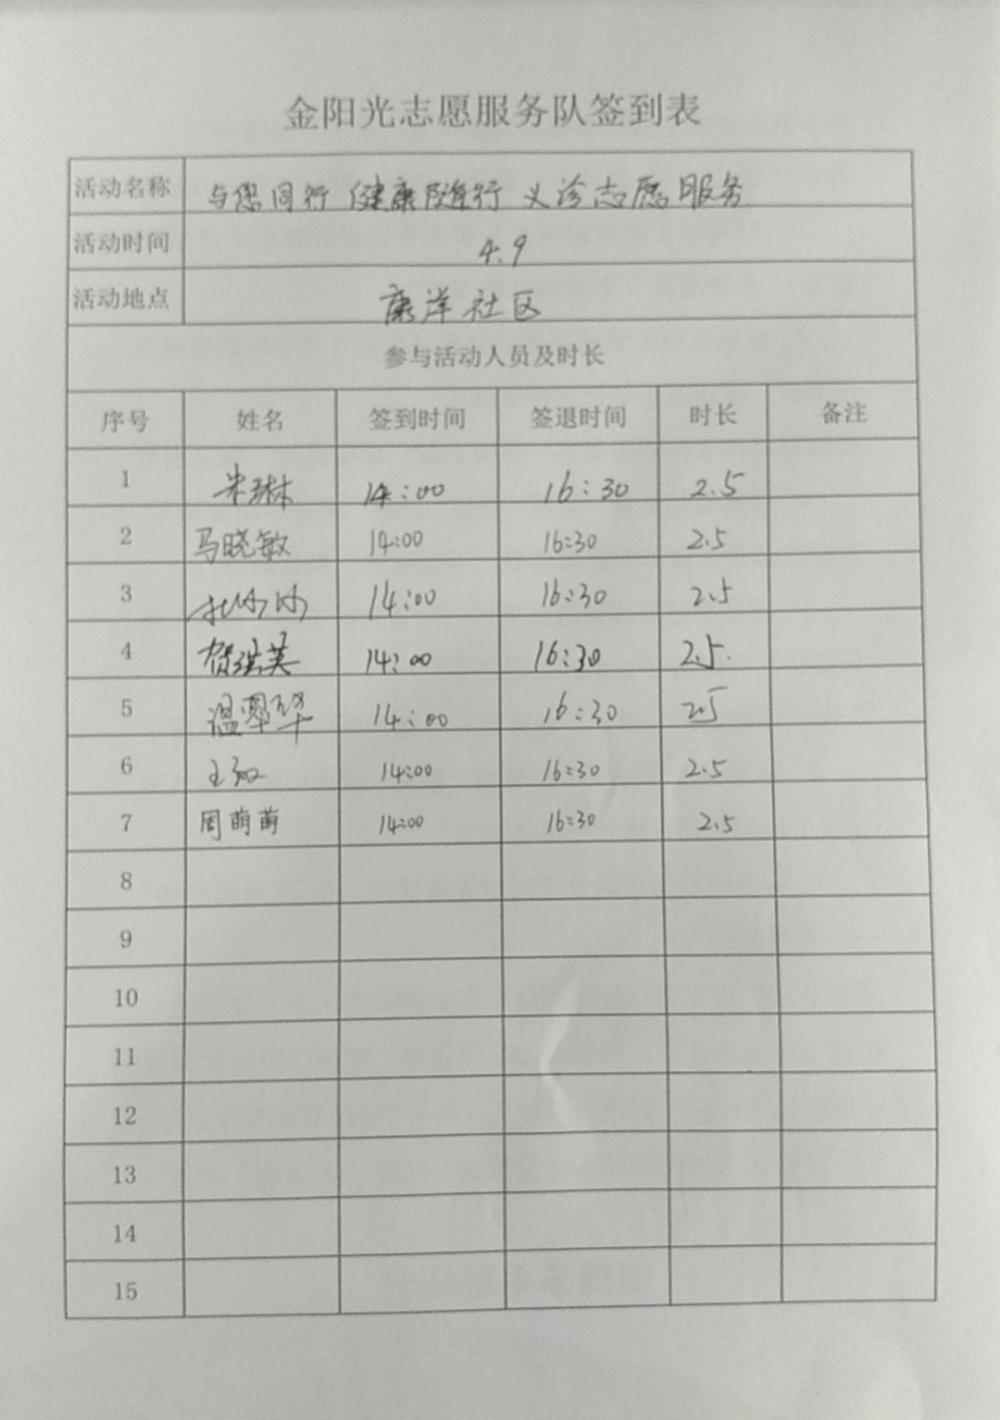 金阳光志愿服务队签到表
活动名称 与您同行 健康随行 义诊志愿服务
活动时间 4.9
活动地点 康洋社区
参与活动人员及时长
序号 姓名 签到时间 签退时间 时长 备注
1 米琳 14:00 16:30 2.5
2 马晓敏 14:00 16:30 2.5
3 14:00 16:30 2.5
4 14:00 16:30 2.5.
5 温翠华 14:00 16:30 2.5
6 14:00 16:30 2.5
7 周萌萌 14:00 16:30 2.5
8
9
10
11
12
13
14
15